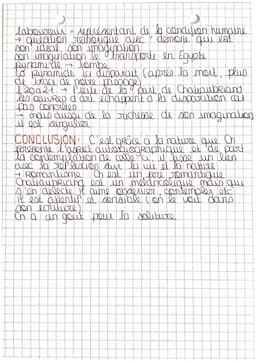 laboureur = représentant de la condition humaine
→ question rhétorique avec "démone qui est
son idéal son imagination
son imagination le transporte en Egypte
pyramide → tombe
la pyramide ici disparait (après la mort, plus
de trace de notre passage)
l 20 à 21 → l de la part de Chateaubriand
les œuvres d'art échappent à la disparition au
pas concrètes
→ mais aussi de la richesse de son imagination
il est singulier
CONCLUSION: C'est grâce à la nature que Ch
présente l'aspect autobiographique et de part
la contemplation de celle-ci, il tisse un lien
avec la réflexion sur la vie et la nature
→ Romantisme Ch est un père romantique
Chateaubriand est un mélancolique mais qui
s'en délecte il aime observer, contempler etc
Il est attentif et sensible (on le voit dans
son écriture)
Ch a un goût pour la solitude